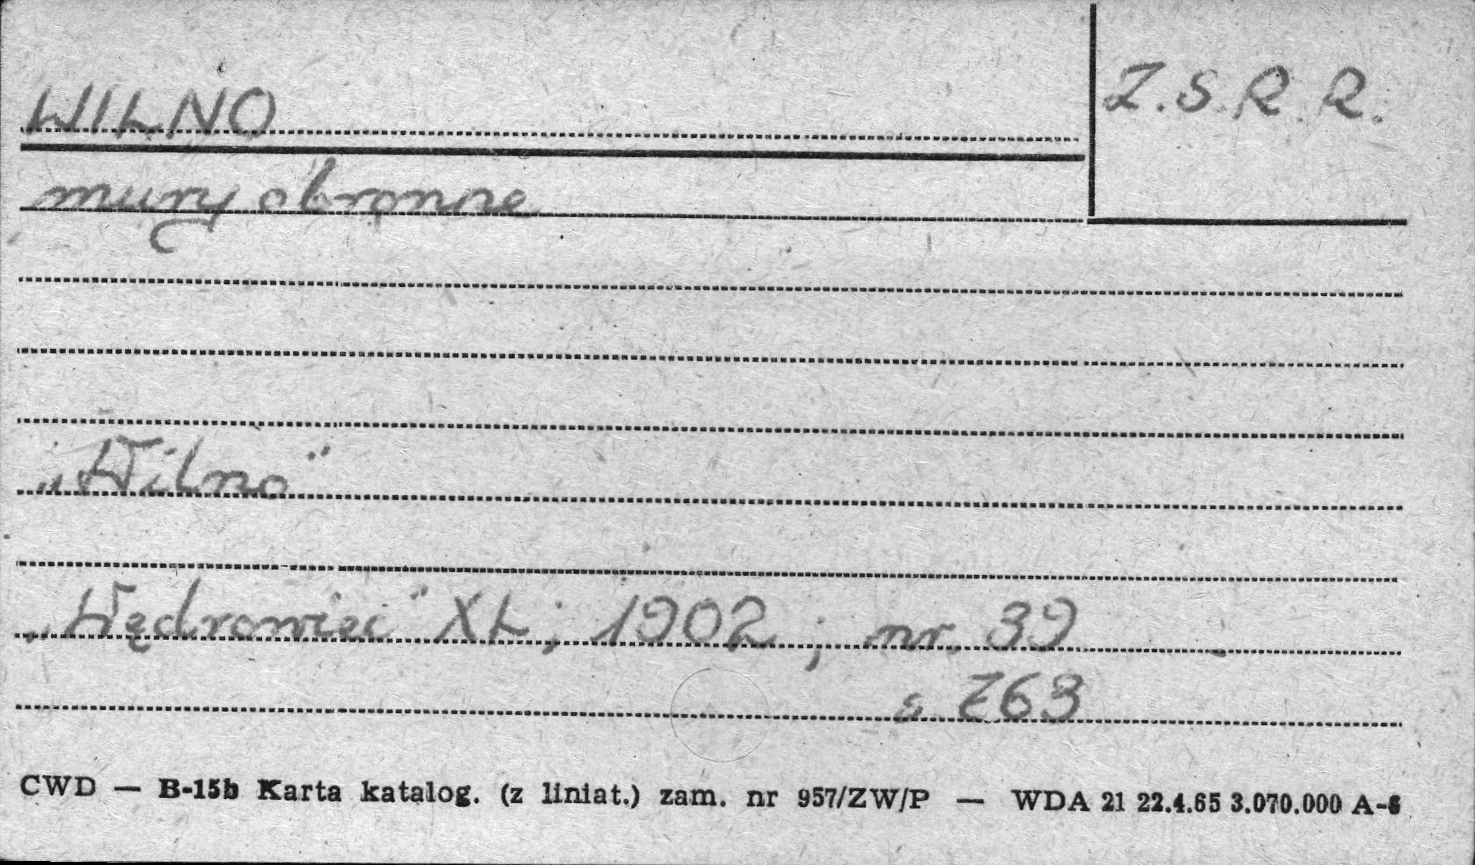 WILNO
Z.S.R.R.
mury obronne
„Wilno"
„Wędrowiec" XL; 1902; nr. 39
s. 763
CWD — B-15b Karta katalog. (z liniat.) zam. nr 957/ZW/P — WDA 21 22.4.65 3.070.000 A-6